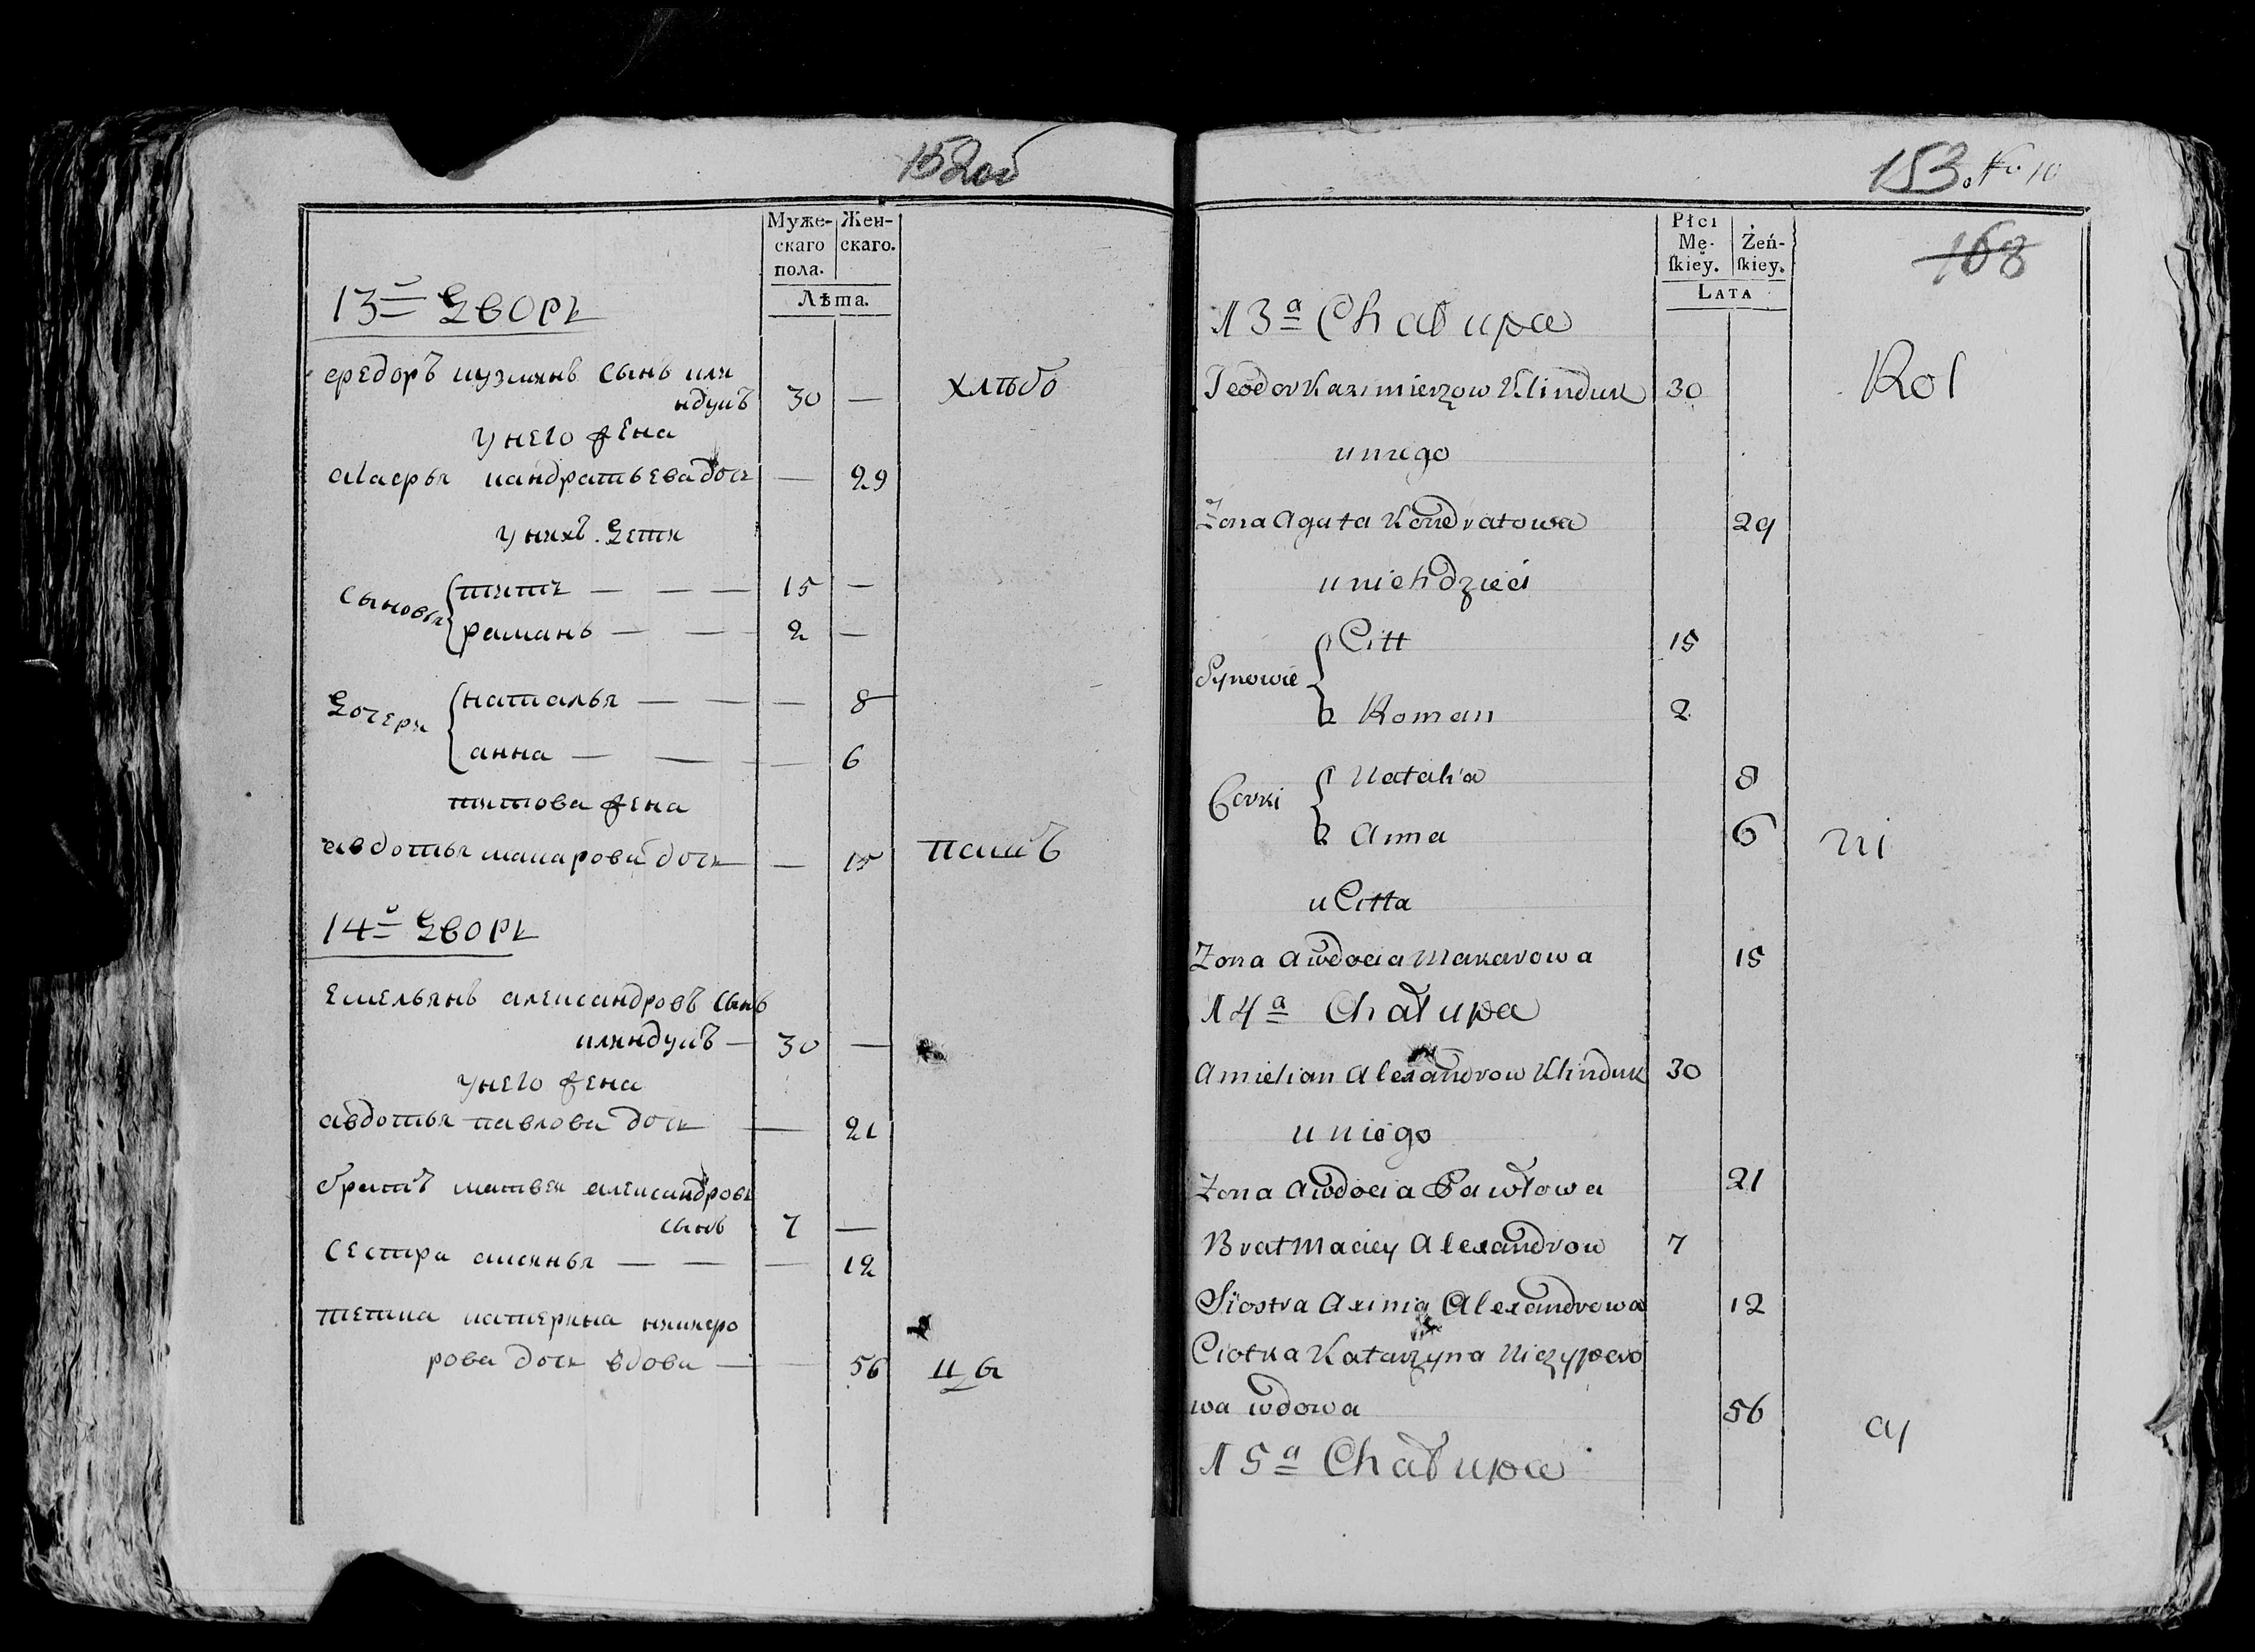 152об
Муже-
скаго
пола.
Жен-
скаго.
Лѣта.
13й Дворъ
федоръ кузминъ сынъ кли
ндукъ 30 — хлѣбо
унего жена
агафья кандратьева дочь — 29
унихъ дети
сыновья
титъ — — — 15 —
раманъ — — 2 —
дочери
наталья — — — 8
анна — — — 6
титова жена
авдотья макарова дочь — 15 пашъ
14й Дворъ
емельянъ александровъ сынъ
клиндукъ — 30 —
унего жена
авдотья павлова дочь — 21
братъ матвей александровъ
сынъ 7 —
сестра аксинья — — — 12
тетка катерина никифо
рова дочь вдова — — 56 цы
153. No 10
168
Płci
Mę-
ſkiey.
Żeń-
ſkiey.
LATA
13a Chałupa
Teodor Kazimierzow Klinduk 30 Rol
u niego
Zona Agata Kondratowa 29
u nich dzieci
Synowie
Citt 15
Roman 2
Corki
Natalia 8
Anna 6 ni
u Citta
Zona Awdocia Makarowa 15
14a Chałupa
Amielian Alexandrow Klinduk 30
u niego
Zona Awdocia Pawłowa 21
Brat Maciey Alexandrow 7
Siostra Axinia Alexandrowa 12
Ciotka Katarzyna Niczypero
wa wdowa 56 cy
15a Chałupa